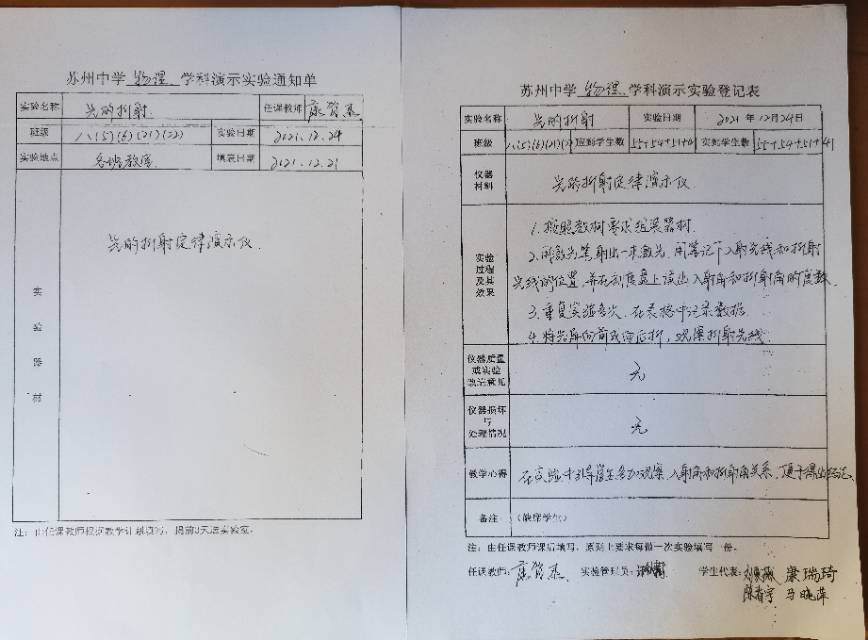 苏州中学 物理 学科演示实验通知单
实验名称 光的折射 任课教师
班级 八(5)(6)(21)(22) 实验日期 2021.12.24
实验地点 各班教室 填表日期 2021.12.21
实验器材 光的折射定律演示仪.
注：由任课教师根据教学计划填写，提前3天送实验室.
苏州中学 物理 学科演示实验登记表
实验名称 光的折射 实验日期 2021年12月24日
班级 八(5)(6)(21)(2) 应到学生数 55+54+51+4 实到学生数 55+54+51+41
仪器材料 光的折射定律演示仪
实验过程及其效果
1.按照教材要求组装器材.
2.用激光笔射出一束激光,用笔记下入射光线和折射
光线的位置,并在刻度盘上读出入射角和折射角的度数.
3.重复实验多次.在表格中记录数据.
4.将光屏向前或向后折,观察折射光线.
仪器质量或实验改进意见 无
仪器损坏与处理情况 无
教学心得 在实验中引导学生多次观察,入射角和折射角关系,便于得出结论
备注 (缺席学生)
注：由任课教师课后填写，原则上要求每做一次实验填写一份.
任课教师: 实验管理员: 学生代表: 康瑞琦
马晓萍